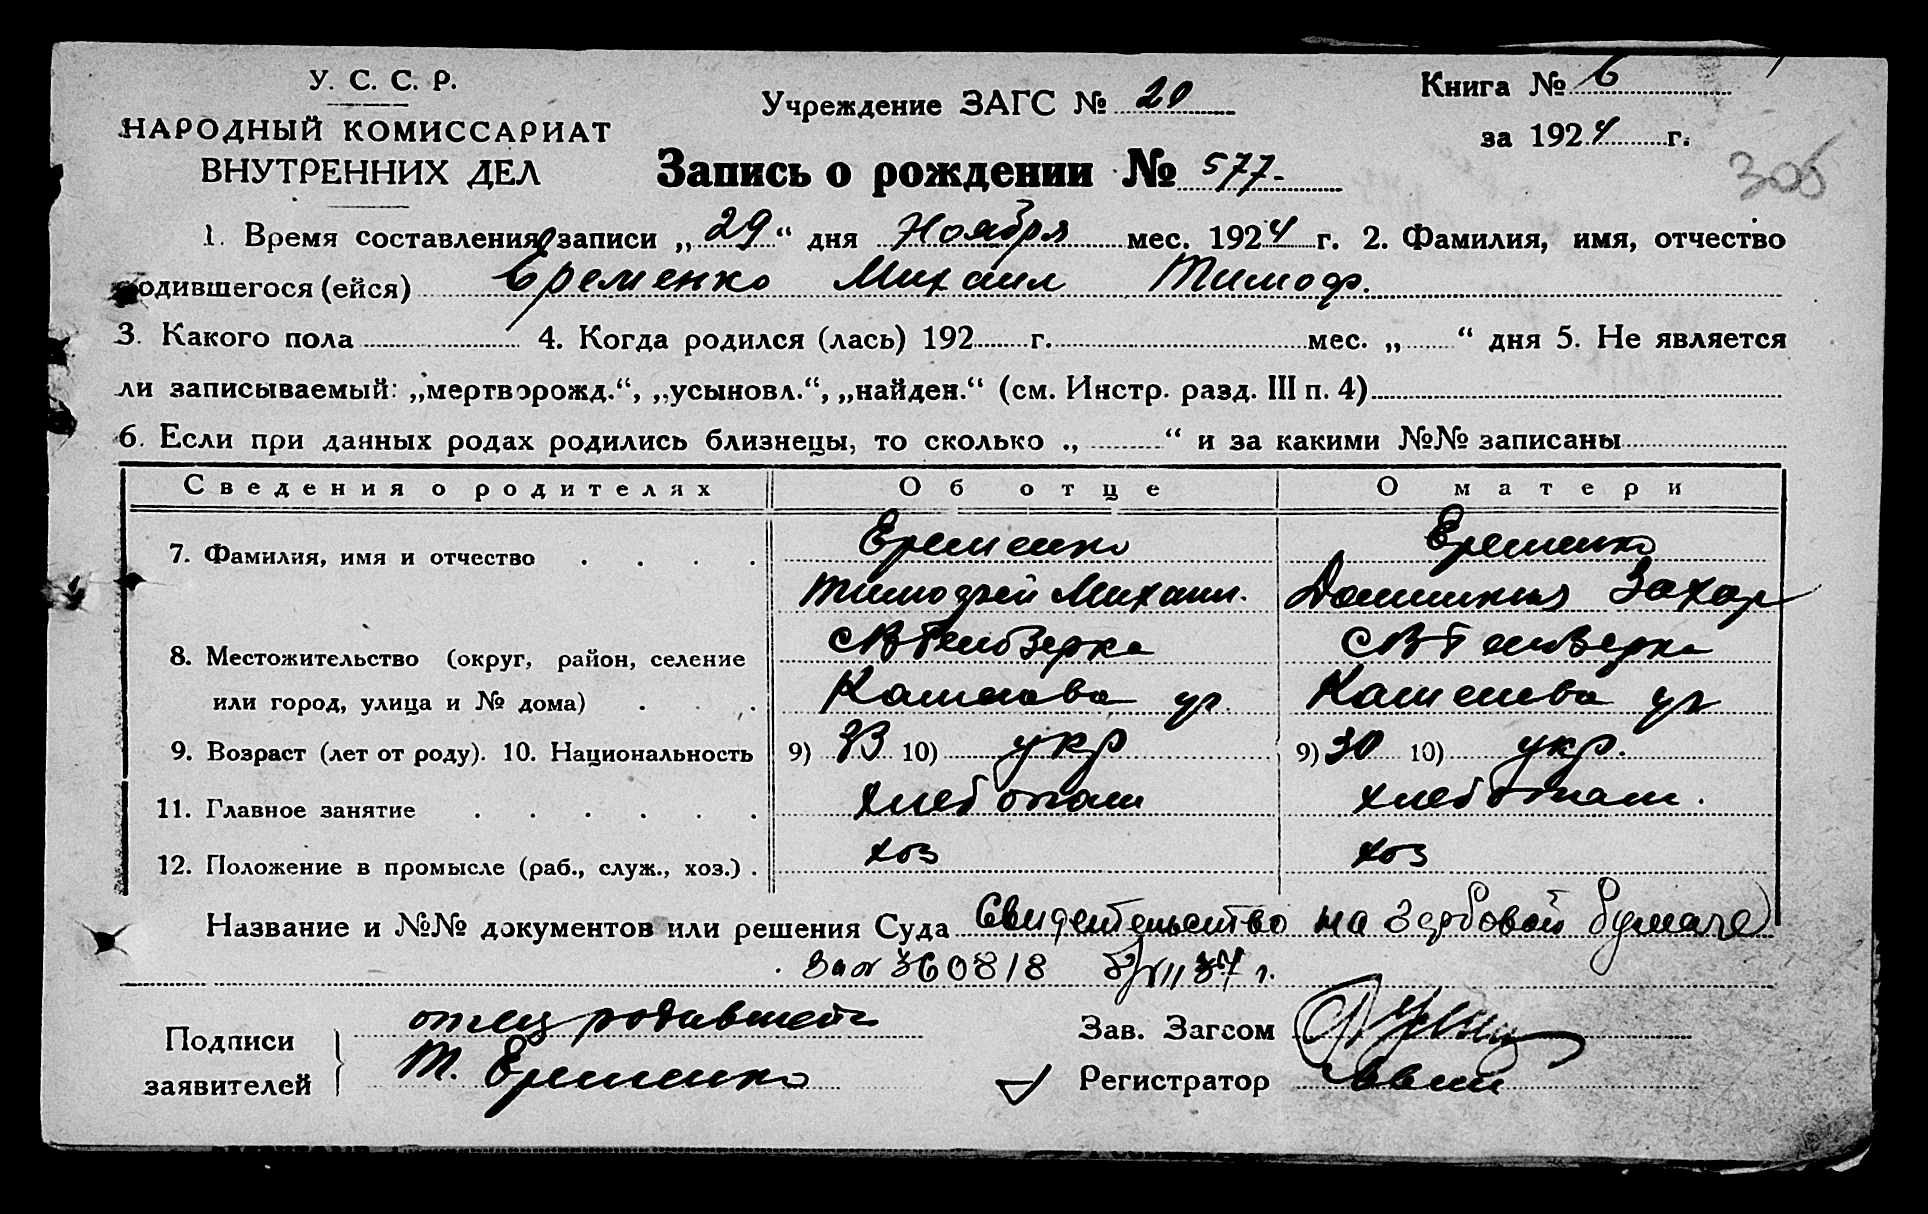 У. С. С. Р.
НАРОДНЫЙ КОМИССАРИАТ
ВНУТРЕННИХ ДЕЛ
Учреждение ЗАГС № 20
Книга № 6
за 1924 г.
Запись о рождении № 577-
305
1. Время составления записи „29“ дня Ноября мес. 1924 г. 2. Фамилия, имя, отчество
родившегося (ейся) Еременко Михаил Тимоф.
3. Какого пола 4. Когда родился (лась) 192 г. мес. „ “ дня 5. Не является
ли записываемый: „мертворожд.“, „усыновл.“, „найден.“ (см. Инстр. разд. III п. 4)
6. Если при данных родах родились близнецы, то сколько „ “ и за какими №№ записаны
Сведения о родителях Об отце О матери
7. Фамилия, имя и отчество Еременко Еременко
Тимофей Михаил. Захар
8. Местожительство (округ, район, селение
или город, улица и № дома) ул. ул
9. Возраст (лет от роду). 10. Национальность 9) 33 10) укр 9) 30 10) укр.
11. Главное занятие хлебопаш хлебопаш.
12. Положение в промысле (раб., служ., хоз.) хоз хоз
Название и №№ документов или решения Суда Свидетельство на гербовой бумаге
За № 360818 37 г.
Подписи заявителей отец
Т. Еременко
Зав. Загсом
Регистратор